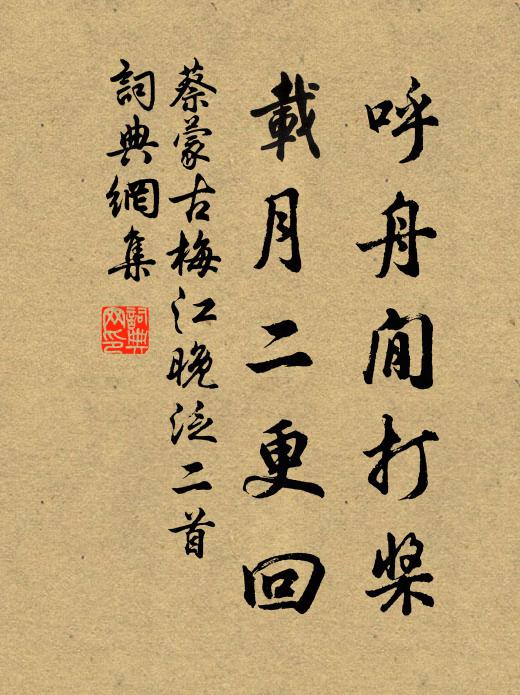 呼舟閒打槳
載月二更回
蔡蒙古梅江晚泛二首
詞典網集
詞典網印